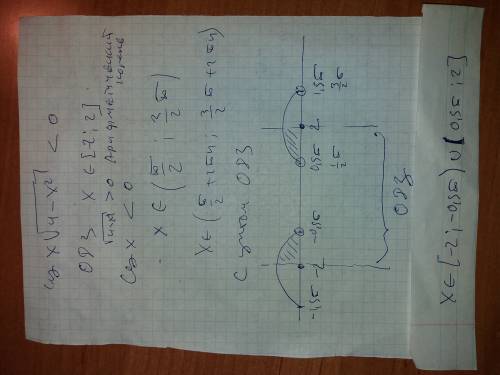 cos x √(4-x²) < 0
ОДЗ x ∈ [-2; 2]
√(4-x²) > 0 арифметический корень
cos x < 0
x ∈ (π/2 ; 3/2 π)
x ∈ (π/2 + 2πn ; 3/2 π + 2πn)
с учетом ОДЗ
-1,5π -2 -0,5π 0,5π 2 1,5π
1/2 π 3/2 π
ОДЗ
x ∈ [-2 ; -0,5π) ∪ (0,5π ; 2]